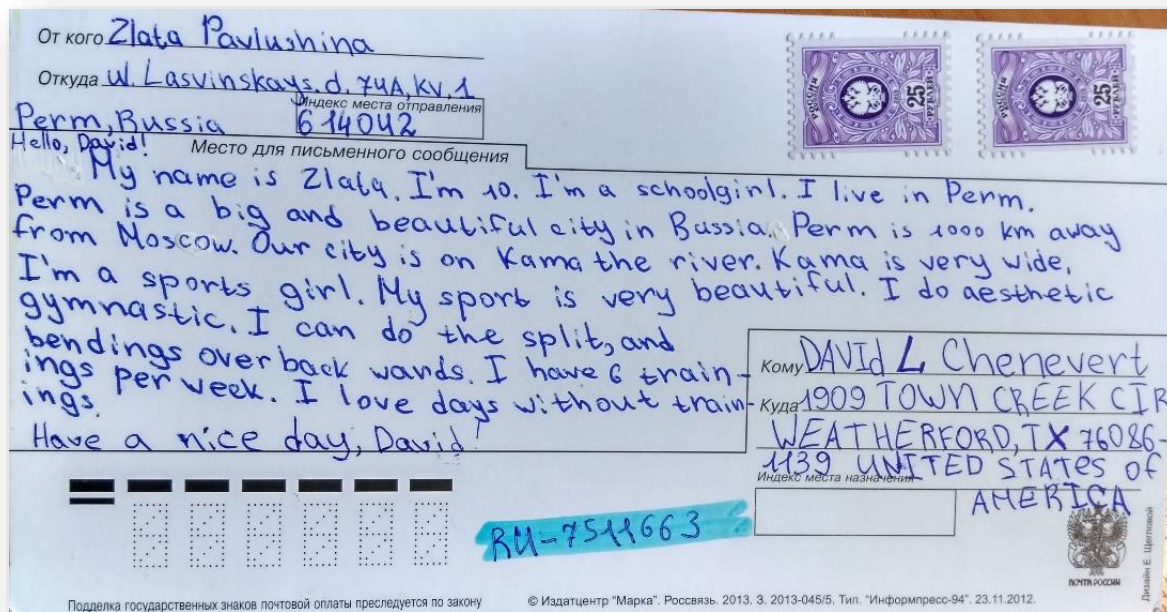 От кого Zlata Pavlushina
Откуда ul. Lasvinskays. d. 74A, KV. 1
Индекс места отправления
Perm, Russia 614042
РОССИЯ 25 РУБЛЕЙ
РОССИЯ 25 РУБЛЕЙ
Hello, David!
Место для письменного сообщения
My name is Zlata. I'm 10. I'm a schoolgirl. I live in Perm.
Perm is a big and beautiful city in Russia. Perm is 1000 km away
from Moscow. Our city is on Kama the river. Kama is very wide.
I'm a sports girl. My sport is very beautiful. I do aesthetic
gymnastic. I can do the split, and
bendings over back wards. I have 6 train-
ings per week. I love days without train-
ings.
Have a nice day, David!
Кому DAVId L Chenevert
Куда 1909 TOWN CREEK CIR
WEATHERFORD, TX 76086-
1139 UNITED STATES OF
Индекс места назначения
AMERICA
RU-7511663
ПОЧТА РОССИИ
Дизайн Е. Щегловой
Подделка государственных знаков почтовой оплаты преследуется по закону
© Издатцентр "Марка". Россвязь. 2013. З. 2013-045/5. Тип. "Информпресс-94". 23.11.2012.